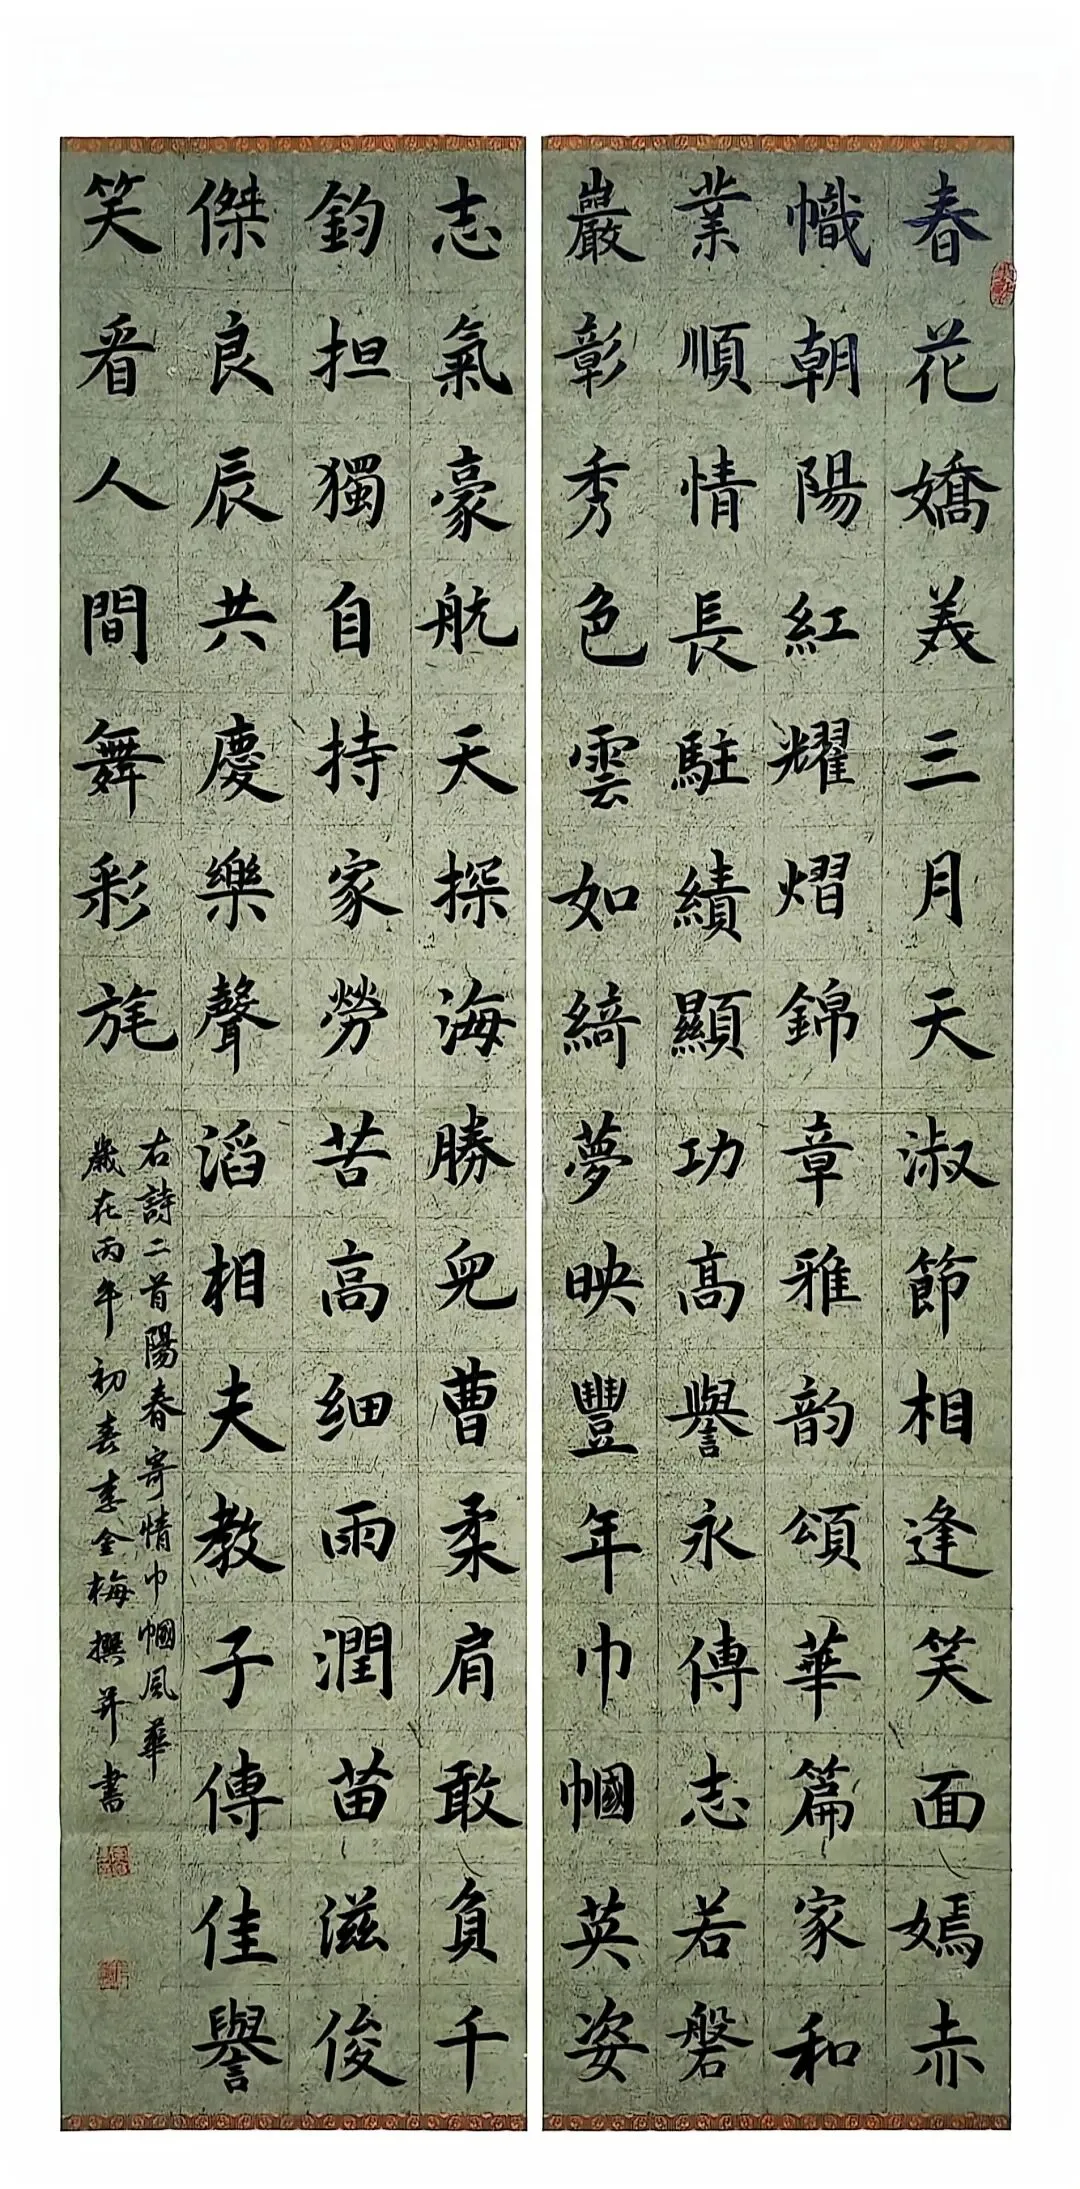 春花嬌美三月天淑節相逢笑面嫣赤
幟朝陽紅耀熠錦章雅韵頌華篇家和
業順情長駐績顯功高譽永傳志若磐
巖彰秀色雲如綺夢映豐年巾幗英姿
志氣豪航天探海勝兒曹柔肩敢負千
鈞担獨自持家勞苦高细雨潤苗滋俊
傑良辰共慶樂聲滔相夫教子傳佳譽
笑看人間舞彩旄
右詩二首陽春寄情巾幗風華
歲在丙午初春李金梅撰并書